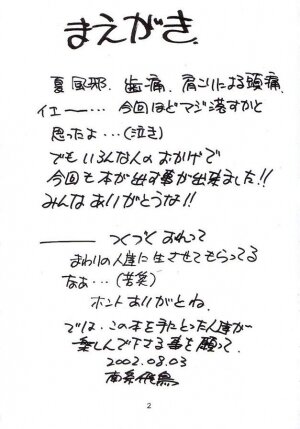 まえがき.
夏風邪. 歯痛. 肩こりによる頭痛.
イエー―… 今回ほどマジ落すかと
思ったよ…(泣き)
でもいろんな人のおかげで
今回も本が出す事が出来ました!!
みんなありがとうな!!
――― つくづくおれって
まわりの人達に生させてもらってる
なぁ…(苦笑)
ホントありがとね.
では、この本を手にとった人達が
楽しんで下さる事を願って.
2002.08.03
2